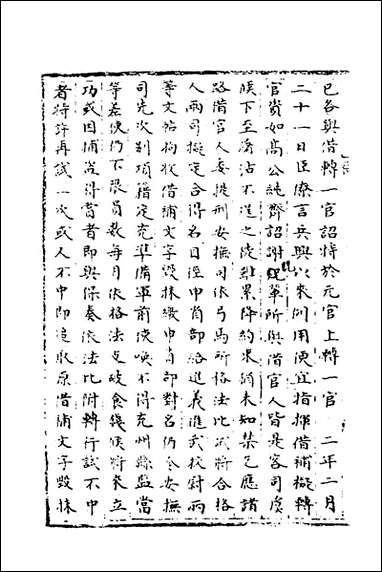 已各與借轉一官詔特於元官上轉一官　二年二月
二十一日臣僚言兵興以來則用便宜指揮借補擬轉
官資如高公純齊詔謝貺輩所與借官人皆是客司虞
候下至屠沽不逞之徒雖累降約束猶未知禁乞應諸
路借官人委提刑安撫司依弓馬所格法比試將合格
人兩司擬定合得名目徑申省部給進義進武校尉兩
等文帖拘收借補文字毀抹繳申省部對名仍令安撫
司先次別項籍定充準備軍前使喚不得充州縣監當
等差使仍不限員數每月依格法支破食錢候將來立
功或因捕盜得當者即與保奏依法比附轉行試不中
者特許再試一次或人不中即追收原借補文字毀抹